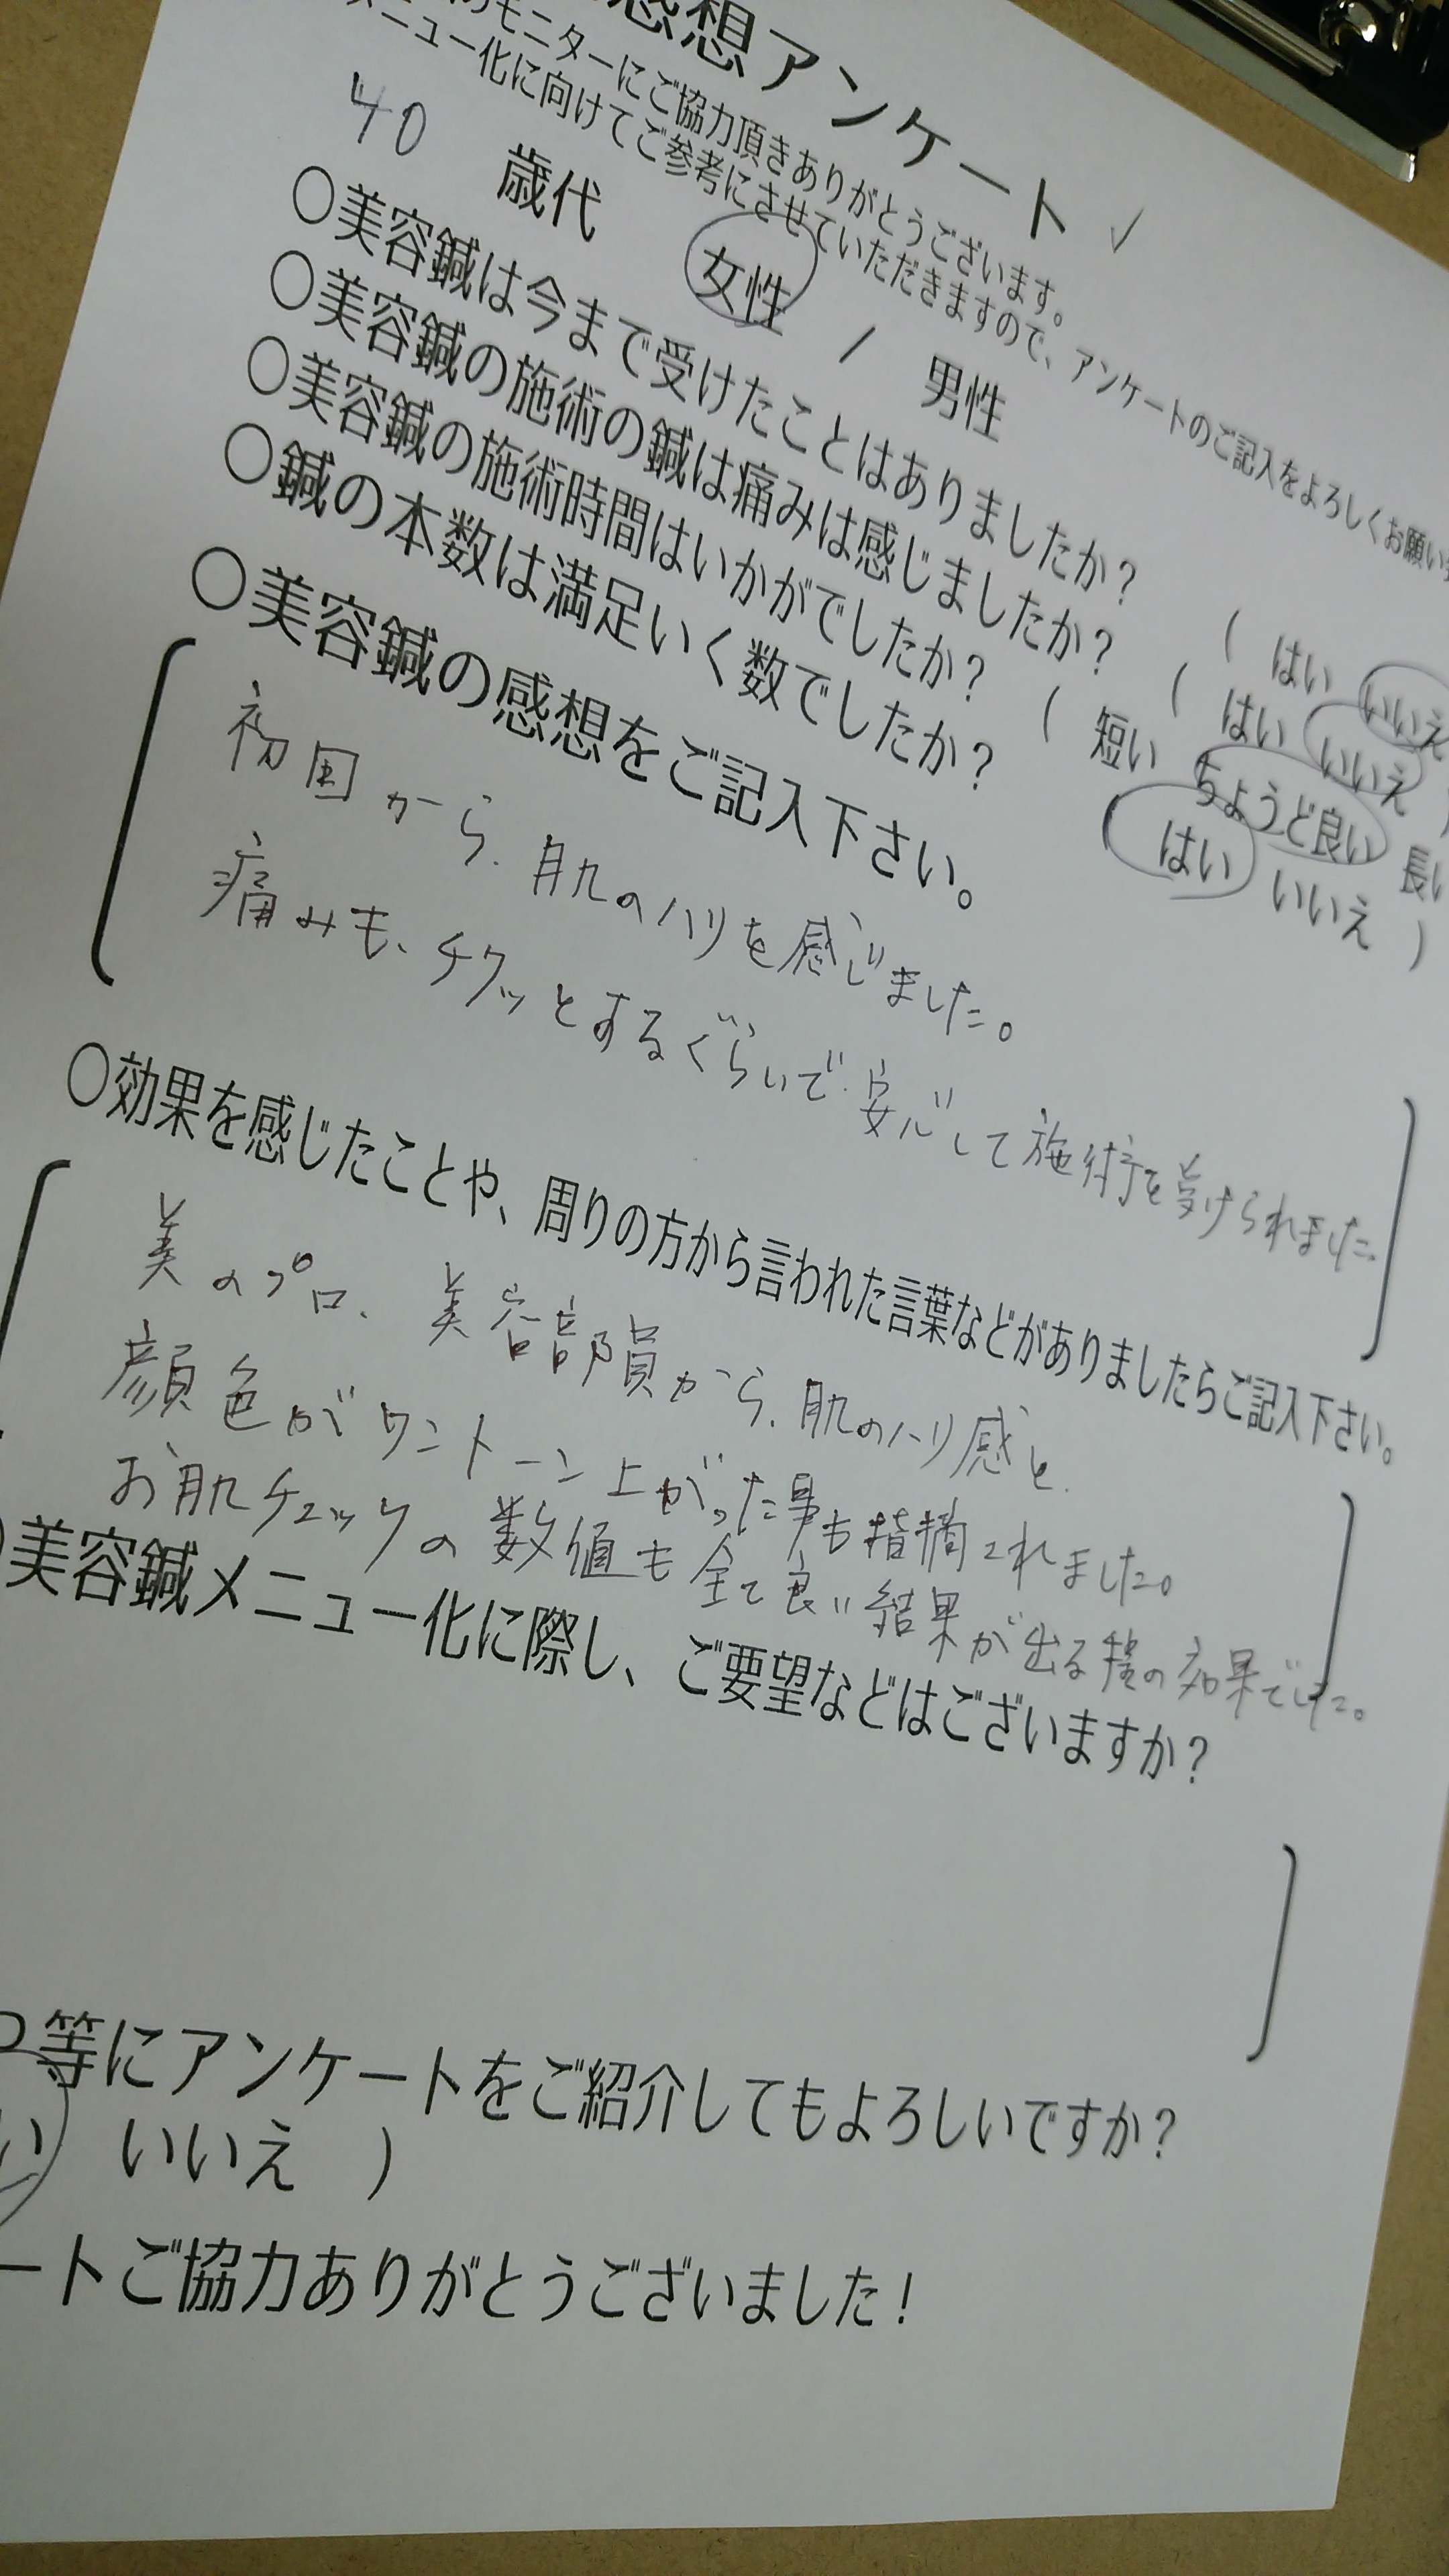 感想アンケート ✓
モニターにご協力頂きありがとうございます。
メニュー化に向けてご参考にさせていただきますので、アンケートのご記入をよろしくお願い
40 歳代 女性 / 男性
○美容鍼は今まで受けたことはありましたか？ ( はい いいえ
○美容鍼の施術の鍼は痛みは感じましたか？ ( はい いいえ )
○美容鍼の施術時間はいかがでしたか？ ( 短い ちょうど良い 長い
○鍼の本数は満足いく数でしたか？ ( はい いいえ )
○美容鍼の感想をご記入下さい。
初回から、肌のハリを感じました。
痛みも、チクッとするぐらいで、安心して施術を受けられました。
○効果を感じたことや、周りの方から言われた言葉などがありましたらご記入下さい。
美のプロ、美容部員から、肌のハリ感と、
顔色がワントーン上がった事も指摘されました。
お肌チェックの数値も全て良い結果が出る程の効果でした。
○美容鍼メニュー化に際し、ご要望などはございますか？
等にアンケートをご紹介してもよろしいですか？
い いいえ )
ートご協力ありがとうございました！